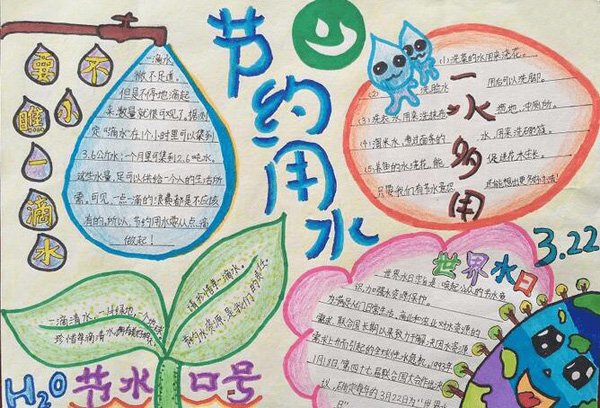 不
要
小
瞧
一
滴
水
一滴水
微不足道。
但是不停地滴起
来，数量就很可观了。据测
定，“滴水”在1个小时里可以集到
3.6公斤水；一个月里可集到2.6吨水。
这些水量，足可以供给一个人的生活所
需。可见，一点一滴的浪费都是不应该
有的。所以，节约用水要从点滴
做起！
节约用水
一水多用
(1)洗菜的水用来浇花。
(2)
洗脸水
用后可以洗脚。
(3)洗衣水用来
拖地、冲厕所。
(4)淘米水、煮过面条的
水，用来洗碗筷。
(5)养鱼的水浇花，能
促进花木生长。
只要我们有节水意识
3.22
世界水日
世界水日宗旨是唤起公众的节水意
识，加强水资源保护。
为满足人们日常生活、商业和农业对水资源的
需求，联合国长期以来致力于解决因水资源
需求上升而引起的全球性水危机。1993年
1月18日，第四十七届联合国大会作出决
议，确定每年的3月22日为“世界水
日”
请你珍惜一滴水。
节约水资源，是我们的责任。
一滴清水，一片绿地，一个地球
珍惜每滴清水
H₂O 节水口号